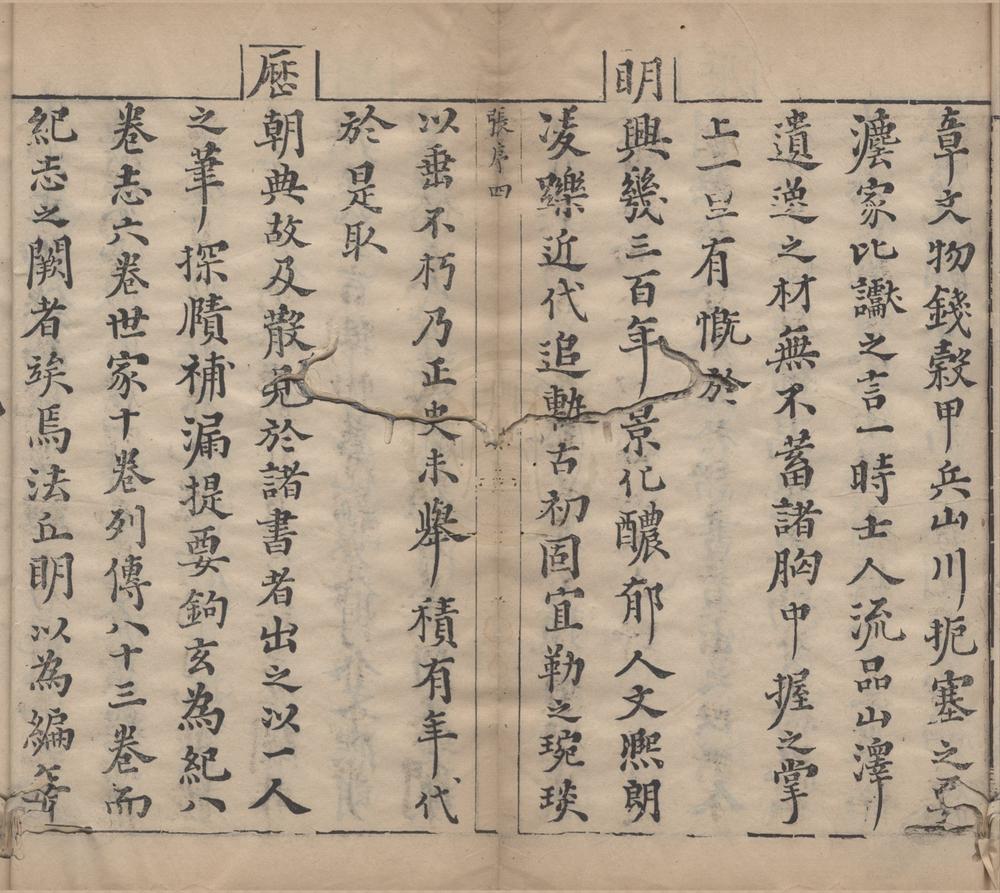 章文物錢穀甲兵山川扼塞之
灋家比讞之言一時士人流品山澤
遺逸之材無不蓄諸胸中握之掌
上一旦有慨於
明興幾三百年景化醲郁人文熙朗
凌躒近代追軼古初固宜勒之琬琰
張序四
以垂不朽乃正史未舉積有年代
於是取
歷朝典故及散見於諸書者出之以一人
之筆探賾補漏提要鉤玄為紀八
卷志六卷世家十卷列傳八十三卷而
紀志之闕者竢焉法丘明以為編年